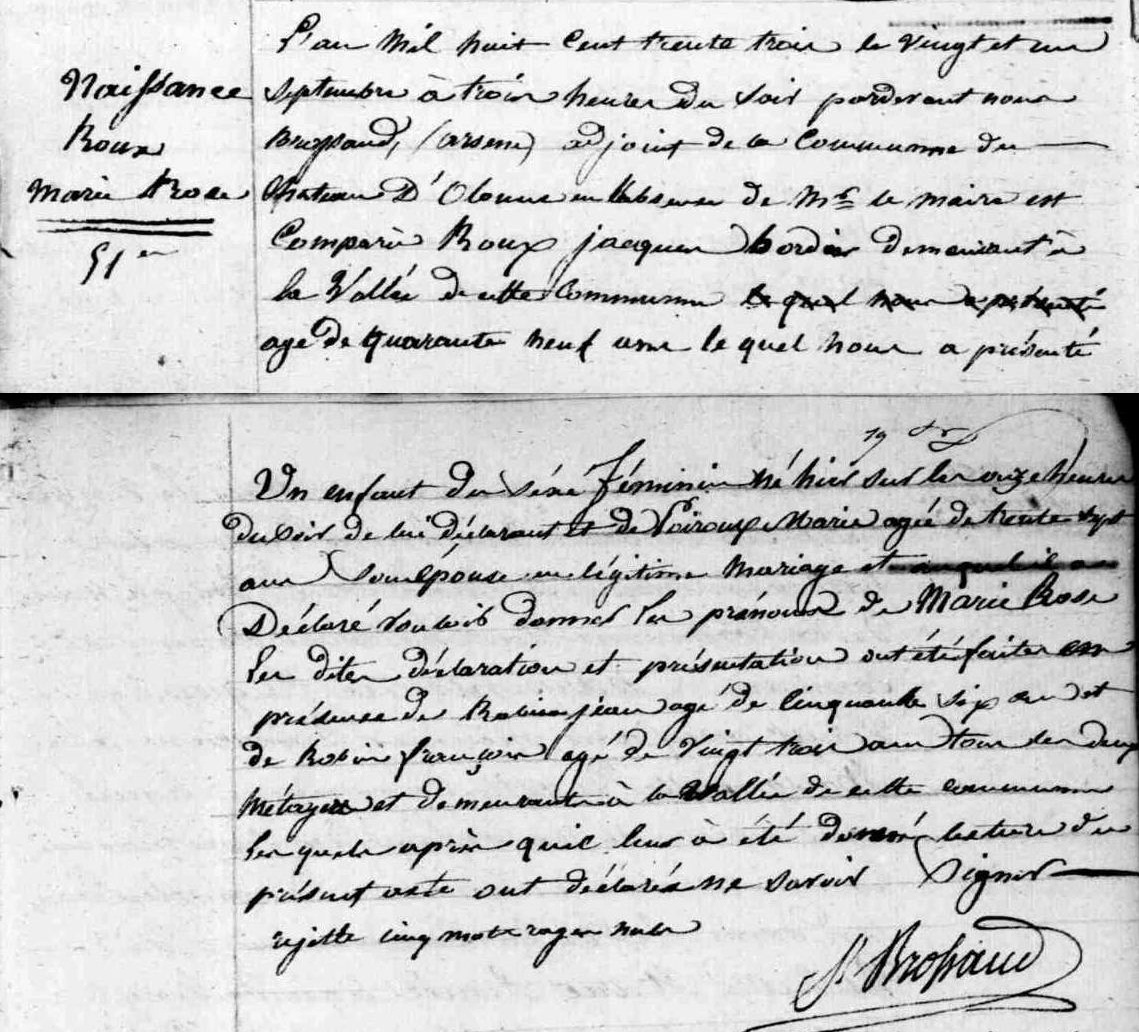 Naissance
Roux
Marie Rose
51 en
L'an mil huit cent trente trois le vingt et un
septembre à trois heures du soir pardevant nous
Brossaud, (arsene) adjoint de la Commune du
Chateau D'Olonne en l'absence de Mr le maire est
Comparu Roux jacques bordier demeurant à
la Vallée de cette Commune le quel nous a présenté
agé de quarante neuf ans le quel nous a présenté
19
Un enfant du séxe féminin né hier sur les onze heures
du soir de lui déclarant et de Poiroux Marie agée de trente sept
ans son épouse en légitime mariage et auquel il a
Déclaré vouloir donner les prénoms de Marie Rose
les dites déclaration et présentation ont été faites en
présence de Robin jean agé de cinquante six ans et
de Robin françois agé de vingt trois ans tous les deux
Métayers et demeurants à la Vallée de cette commune
les quels après qu'il leur à été donné lecture du
présent acte ont déclarés ne savoir signer
rejette cinq mots rayés nuls
Brossaud